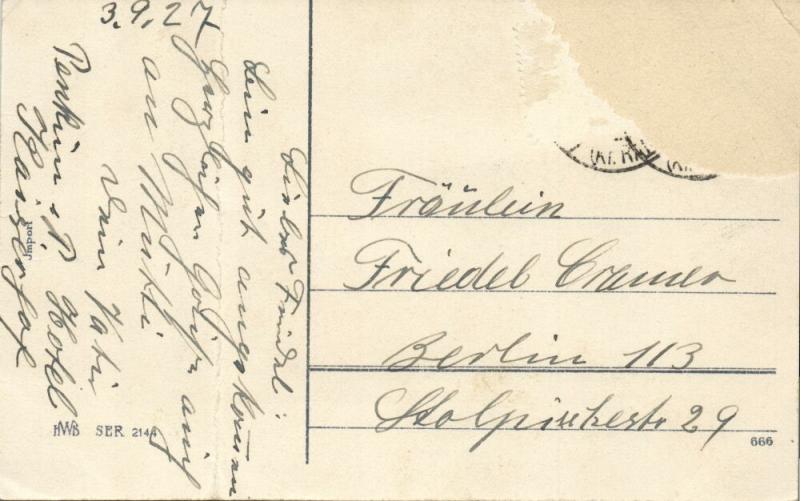 3.9.27
Liebe Friedel:
Bin gut angekommen
Herzlichen Gruß auch
an Mutti
Dein Vater
Penkun i. P. Hotel
Kaiserhof
Import
HWB SER 214
Fräulein
Friedel Cramer
Berlin 113
Stolpischestr 29
666